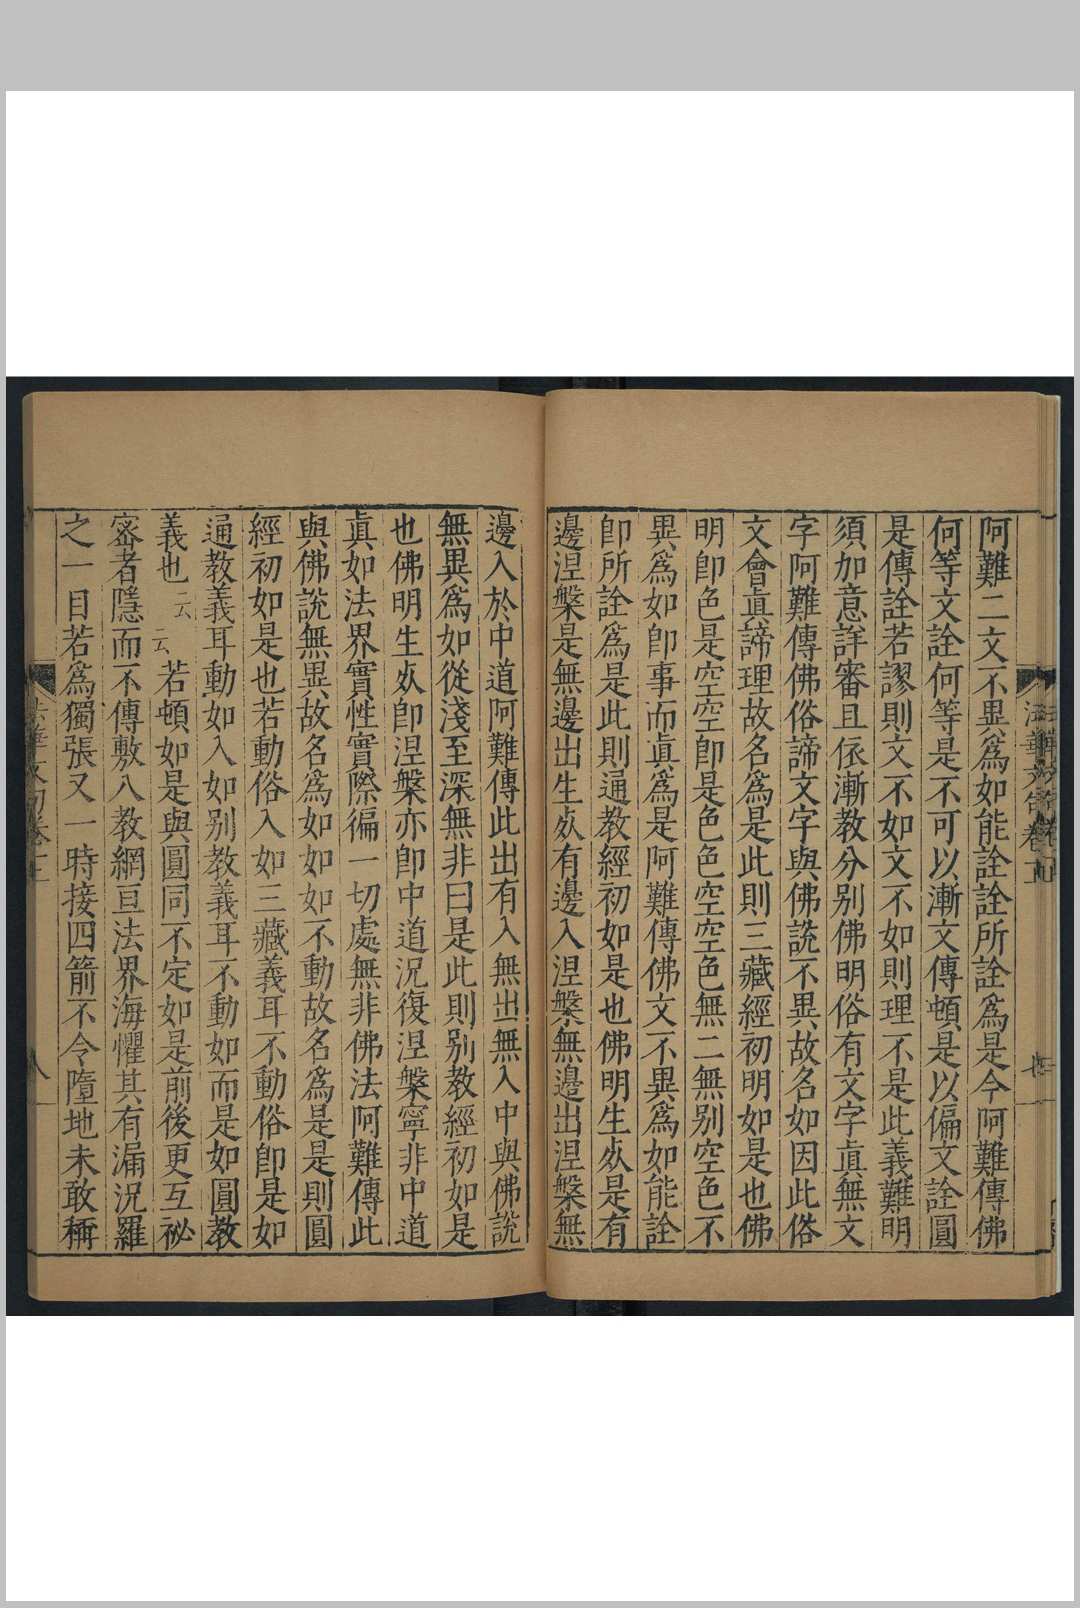 阿難二文不異爲如能詮詮所詮爲是今阿難傳佛
何等文詮何等是不可以漸文傳頓是以偏文詮圓
是傳詮若謬則文不如文不如則理不是此義難明
須加意詳審且依漸教分別佛明俗有文字眞無文
字阿難傳佛俗諦文字與佛說不異故名如因此俗
文會眞諦理故名爲是此則三藏經初明如是也佛
明卽色是空空卽是色色空空色無二無別空色不
異爲如卽事而眞爲是阿難傳佛文不異爲如能詮
卽所詮爲是此則通教經初如是也佛明生死是有
邊涅槃是無邊出生死有邊入涅槃無邊出涅槃無
邊入於中道阿難傳此出有入無出無入中與佛說
無異爲如從淺至深無非曰是此則別教經初如是
也佛明生死卽涅槃亦卽中道況復涅槃寧非中道
眞如法界實性實際徧一切處無非佛法阿難傳此
與佛說無異故名爲如如如不動故名爲是是則圓
經初如是也若動俗入如三藏義耳不動俗卽是如
通教義耳動如入如別教義耳不動如而是如圓教
義也云云若頓如是與圓同不定如是前後更互祕
密者隱而不傳敷八教網亘法界海懼其有漏況羅
之一目若爲獨張又一時接四箭不令墮地未敢稱